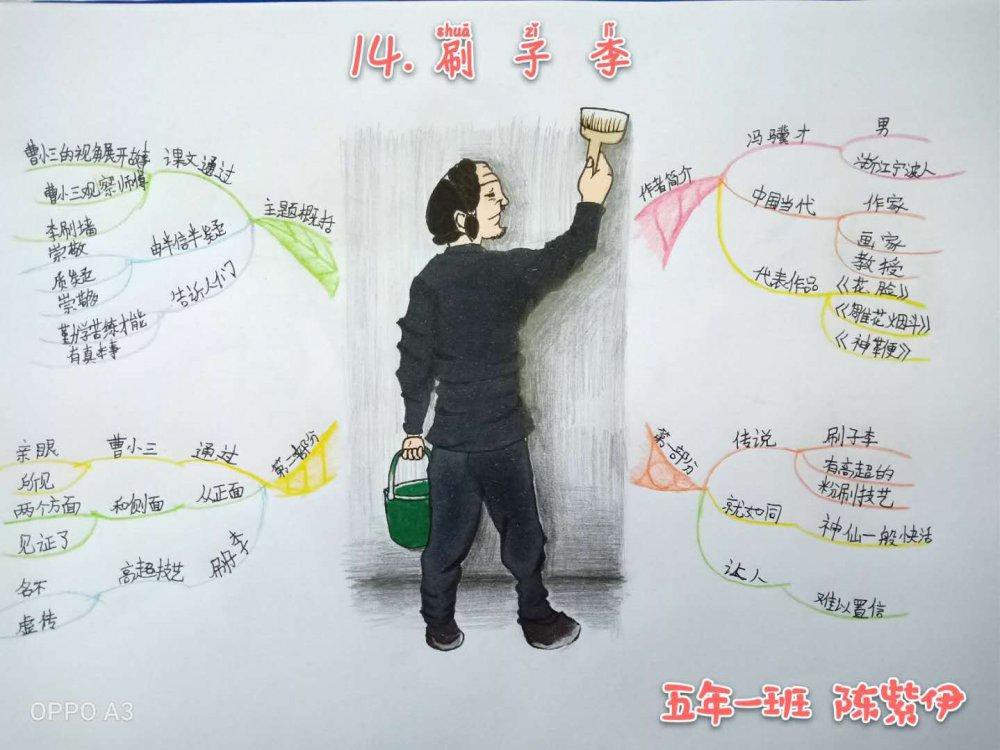 shuā zǐ lǐ
14.刷子李
作者简介
冯骥才
男
浙江宁波人
中国当代
作家
画家
教授
代表作品
《花脸》
《雕花烟斗》
《神鞭》
第一部分
传说
刷子李
有高超的
粉刷技艺
就如同
神仙一般快活
让人
难以置信
第二部分
通过
曹小三
亲眼
所见
从正面
和侧面
两个方面
见证了
刷子李
高超技艺
名不
虚传
主题概括
课文通过
曹小三的视角展开故事
曹小三观察师傅
李刷墙
由半信半疑
崇敬
质疑
崇敬
告诉人们
勤学苦练才能
有真本事
五年一班 陈紫伊
OPPO A3